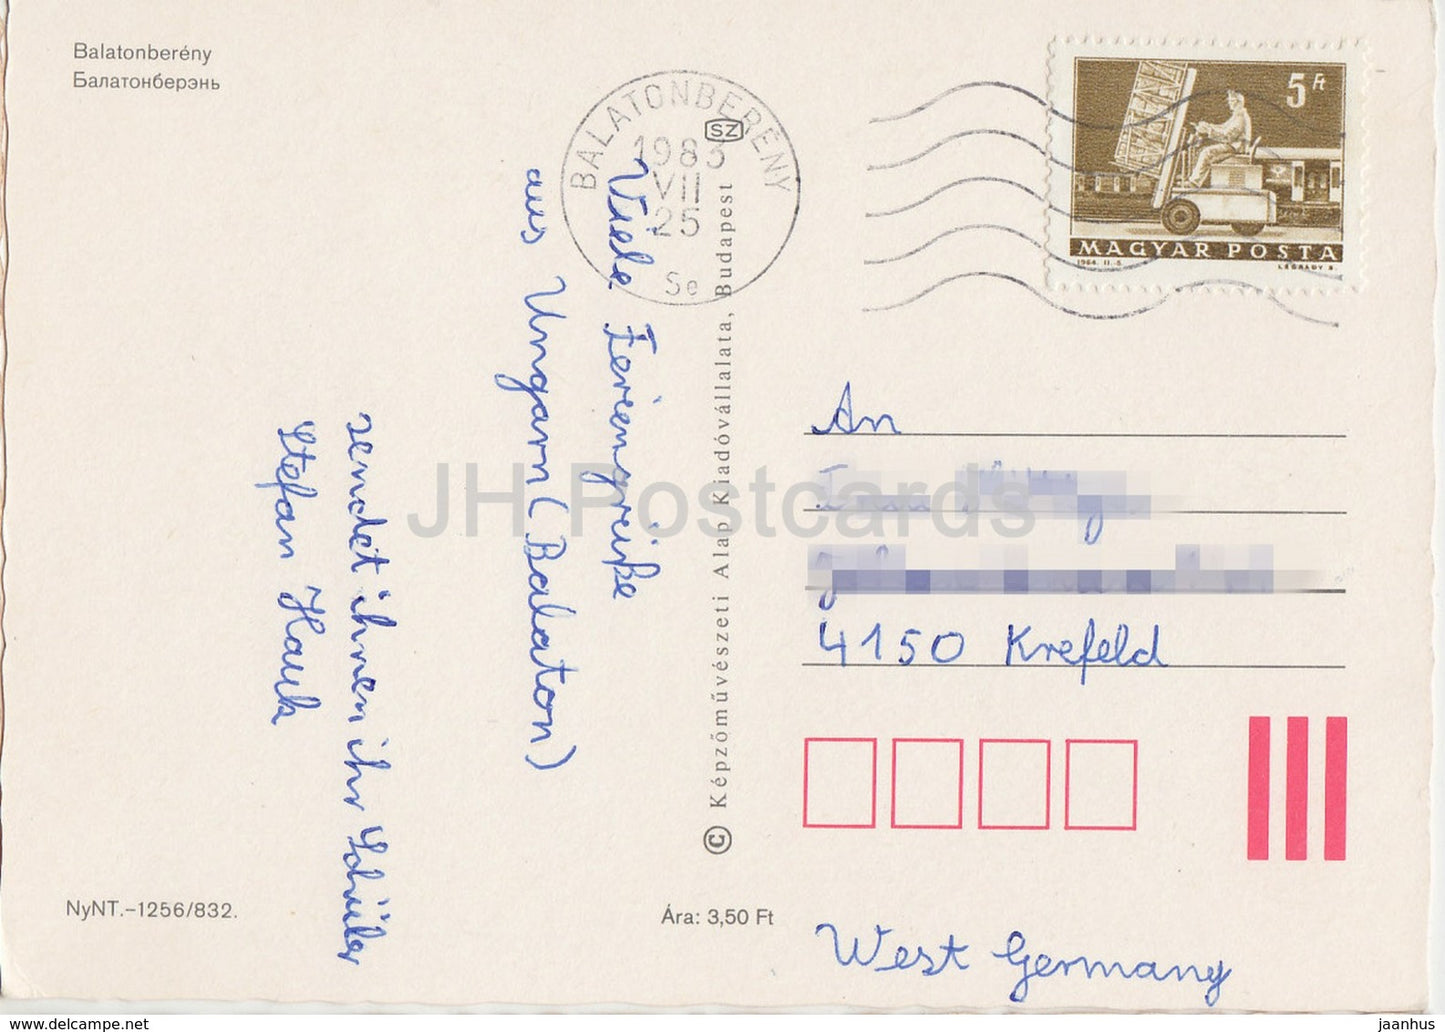 Balatonberény
Балатонберэнь
BALATONBERÉNY
SZ
1983
VII
25
Se
5 Ft
MAGYAR POSTA
1964. II.-5.
LÉGRÁDY S.
Viele Feriengrüße
aus Ungarn (Balaton)
sendet ihnen ihr Schüler
Stefan Hauk
© Képzőművészeti Alap Kiadóvállalata, Budapest
JH Postcards
An
4150 Krefeld
West Germany
NyNT.-1256/832.
Ára: 3,50 Ft
http://www.delcampe.net
jaanhus